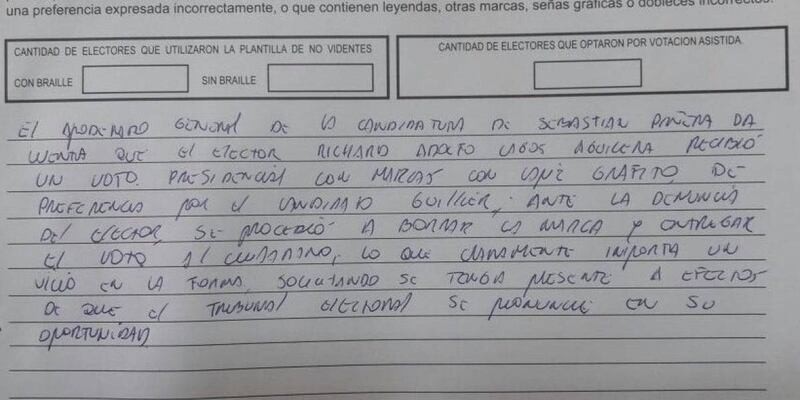 una preferencia expresada incorrectamente, o que contienen leyendas, otras marcas, señas gráficas o dobleces incorrectos.
CANTIDAD DE ELECTORES QUE UTILIZARON LA PLANTILLA DE NO VIDENTES
CON BRAILLE SIN BRAILLE
CANTIDAD DE ELECTORES QUE OPTARON POR VOTACION ASISTIDA
El APODERADO GENERAL DE LA CANDIDATURA DE SEBASTIAN PIÑERA DA
CUENTA QUE El ELECTOR RICHARD ADOLFO LAGOS AGUILERA RECIBIÓ
UN VOTO PRESIDENCIAL CON MARCAS CON LAPIZ GRAFITO DE
PREFERENCIA POR El CANDIDATO GUILLIER, ANTE LA DENUNCIA
DEL ELECTOR, SE PROCEDIÓ A BORRAR LA MARCA Y ENTREGAR
El VOTO Al CIUDADANO, LO QUE CLARAMENTE IMPORTA UN
VICIO EN LA FORMA, SOLICITANDO SE TENGA PRESENTE A EFECTOS
DE QUE El TRIBUNAL ELECTORAL SE PRONUNCIE EN SU
OPORTUNIDAD